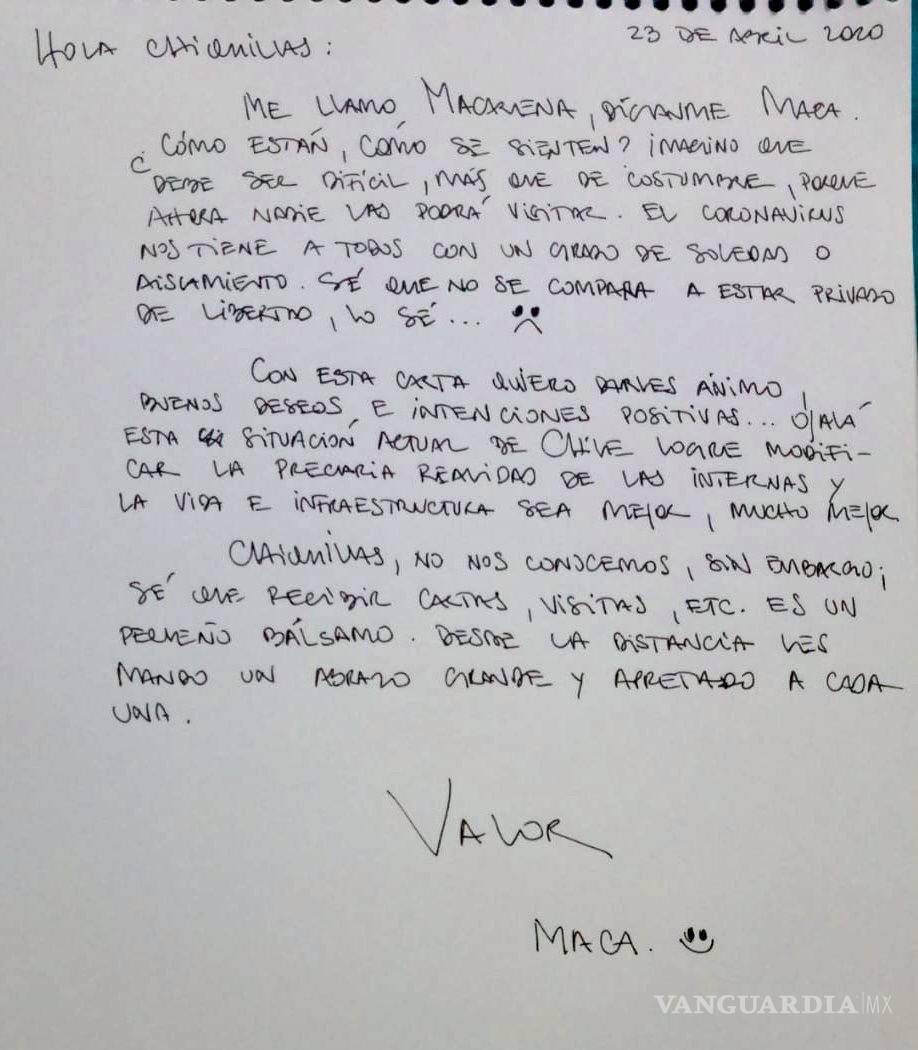 23 DE ABRIL 2020
HOLA CHIQUILLAS:
ME LLAMO MACARENA, DÍGANME MACA.
¿CÓMO ESTÁN, CÓMO SE SIENTEN? IMAGINO QUE
DEBE SER DIFÍCIL, MÁS QUE DE COSTUMBRE, PORQUE
AHORA NADIE LAS PODRÁ VISITAR. EL CORONAVIRUS
NOS TIENE A TODOS CON UN GRADO DE SOLEDAD O
AISLAMIENTO. SÉ QUE NO SE COMPARA A ESTAR PRIVADO
DE LIBERTAD, LO SÉ...
CON ESTA CARTA QUIERO DARLES ÁNIMO,
BUENOS DESEOS, E INTENCIONES POSITIVAS... OJALÁ
ESTA SITUACIÓN ACTUAL DE CHILE LOGRE MODIFI-
CAR LA PRECARIA REALIDAD DE LAS INTERNAS Y
LA VIDA E INFRAESTRUCTURA SEA MEJOR, MUCHO MEJOR
CHIQUILLAS, NO NOS CONOCEMOS, SIN EMBARGO;
SÉ QUE RECIBIR CARTAS, VISITAS, ETC. ES UN
PEQUEÑO BÁLSAMO. DESDE LA DISTANCIA LES
MANDO UN ABRAZO GRANDE Y APRETADO A CADA
UNA.
VALOR
MACA.
VANGUARDIA|MX